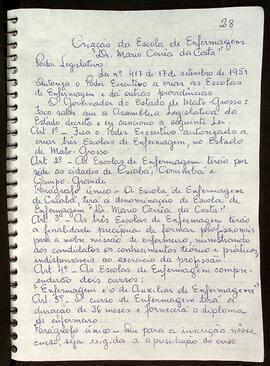 28
Criação da Escola de Enfermagem
"Dr. Mario Corrêa da Costa"
Poder Legislativo:
Lei nº 417 de 17 de setembro de 1951
Autoriza o Poder Executivo a criar as Escolas
de Enfermagem e dá outras providências
O Governador do Estado de Mato-Grosso:
Faço saber que a Assembléia Legislativa do
Estado decreta e eu sanciono a seguinte lei:
Art 1º - Fica o Poder Executivo autorizado a
criar três Escolas de Enfermagem, no Estado
de Mato-Grosso.
Art 2º - As Escolas de Enfermagem terão por
sede as cidades de Cuiabá, Corumbá e
Campo-Grande.
Parágrafo único - A Escola de Enfermagem
de Cuiabá, terá a denominação de Escola de
Enfermagem "Dr. Mario Corrêa da Costa".
Art 3º - As três Escolas de Enfermagem terão
a finalidade precípua de formar profissionais
para a nobre missão de enfermeiro, ministrando
aos candidatos os conhecimentos teórico e prático,
indispensáveis ao exercício da profissão.
Art 4º - As Escolas de Enfermagem compre-
enderão dois cursos:
"Enfermagem e o de Auxiliar de Enfermagem"
Art 5º - O curso de Enfermagem terá a
duração de 36 meses e fornecerá o diploma
de enfermeiro.
Parágrafo único - Que para a inscrição nesse
curso, seja exigida a apresentação do curso